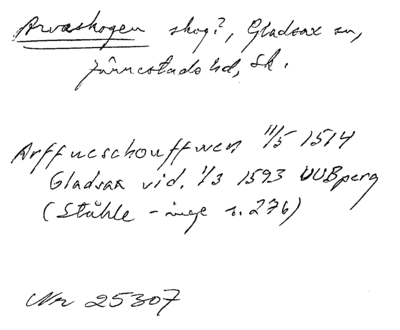 Arvaskogen skog?, Gladsax sn,
Järrestads hd, Sk.
Arffueschouffwen 11/5 1514
Gladsax vid. 1/3 1593 UUBperg
(Ståhle - inge s. 276)
Nr 25307